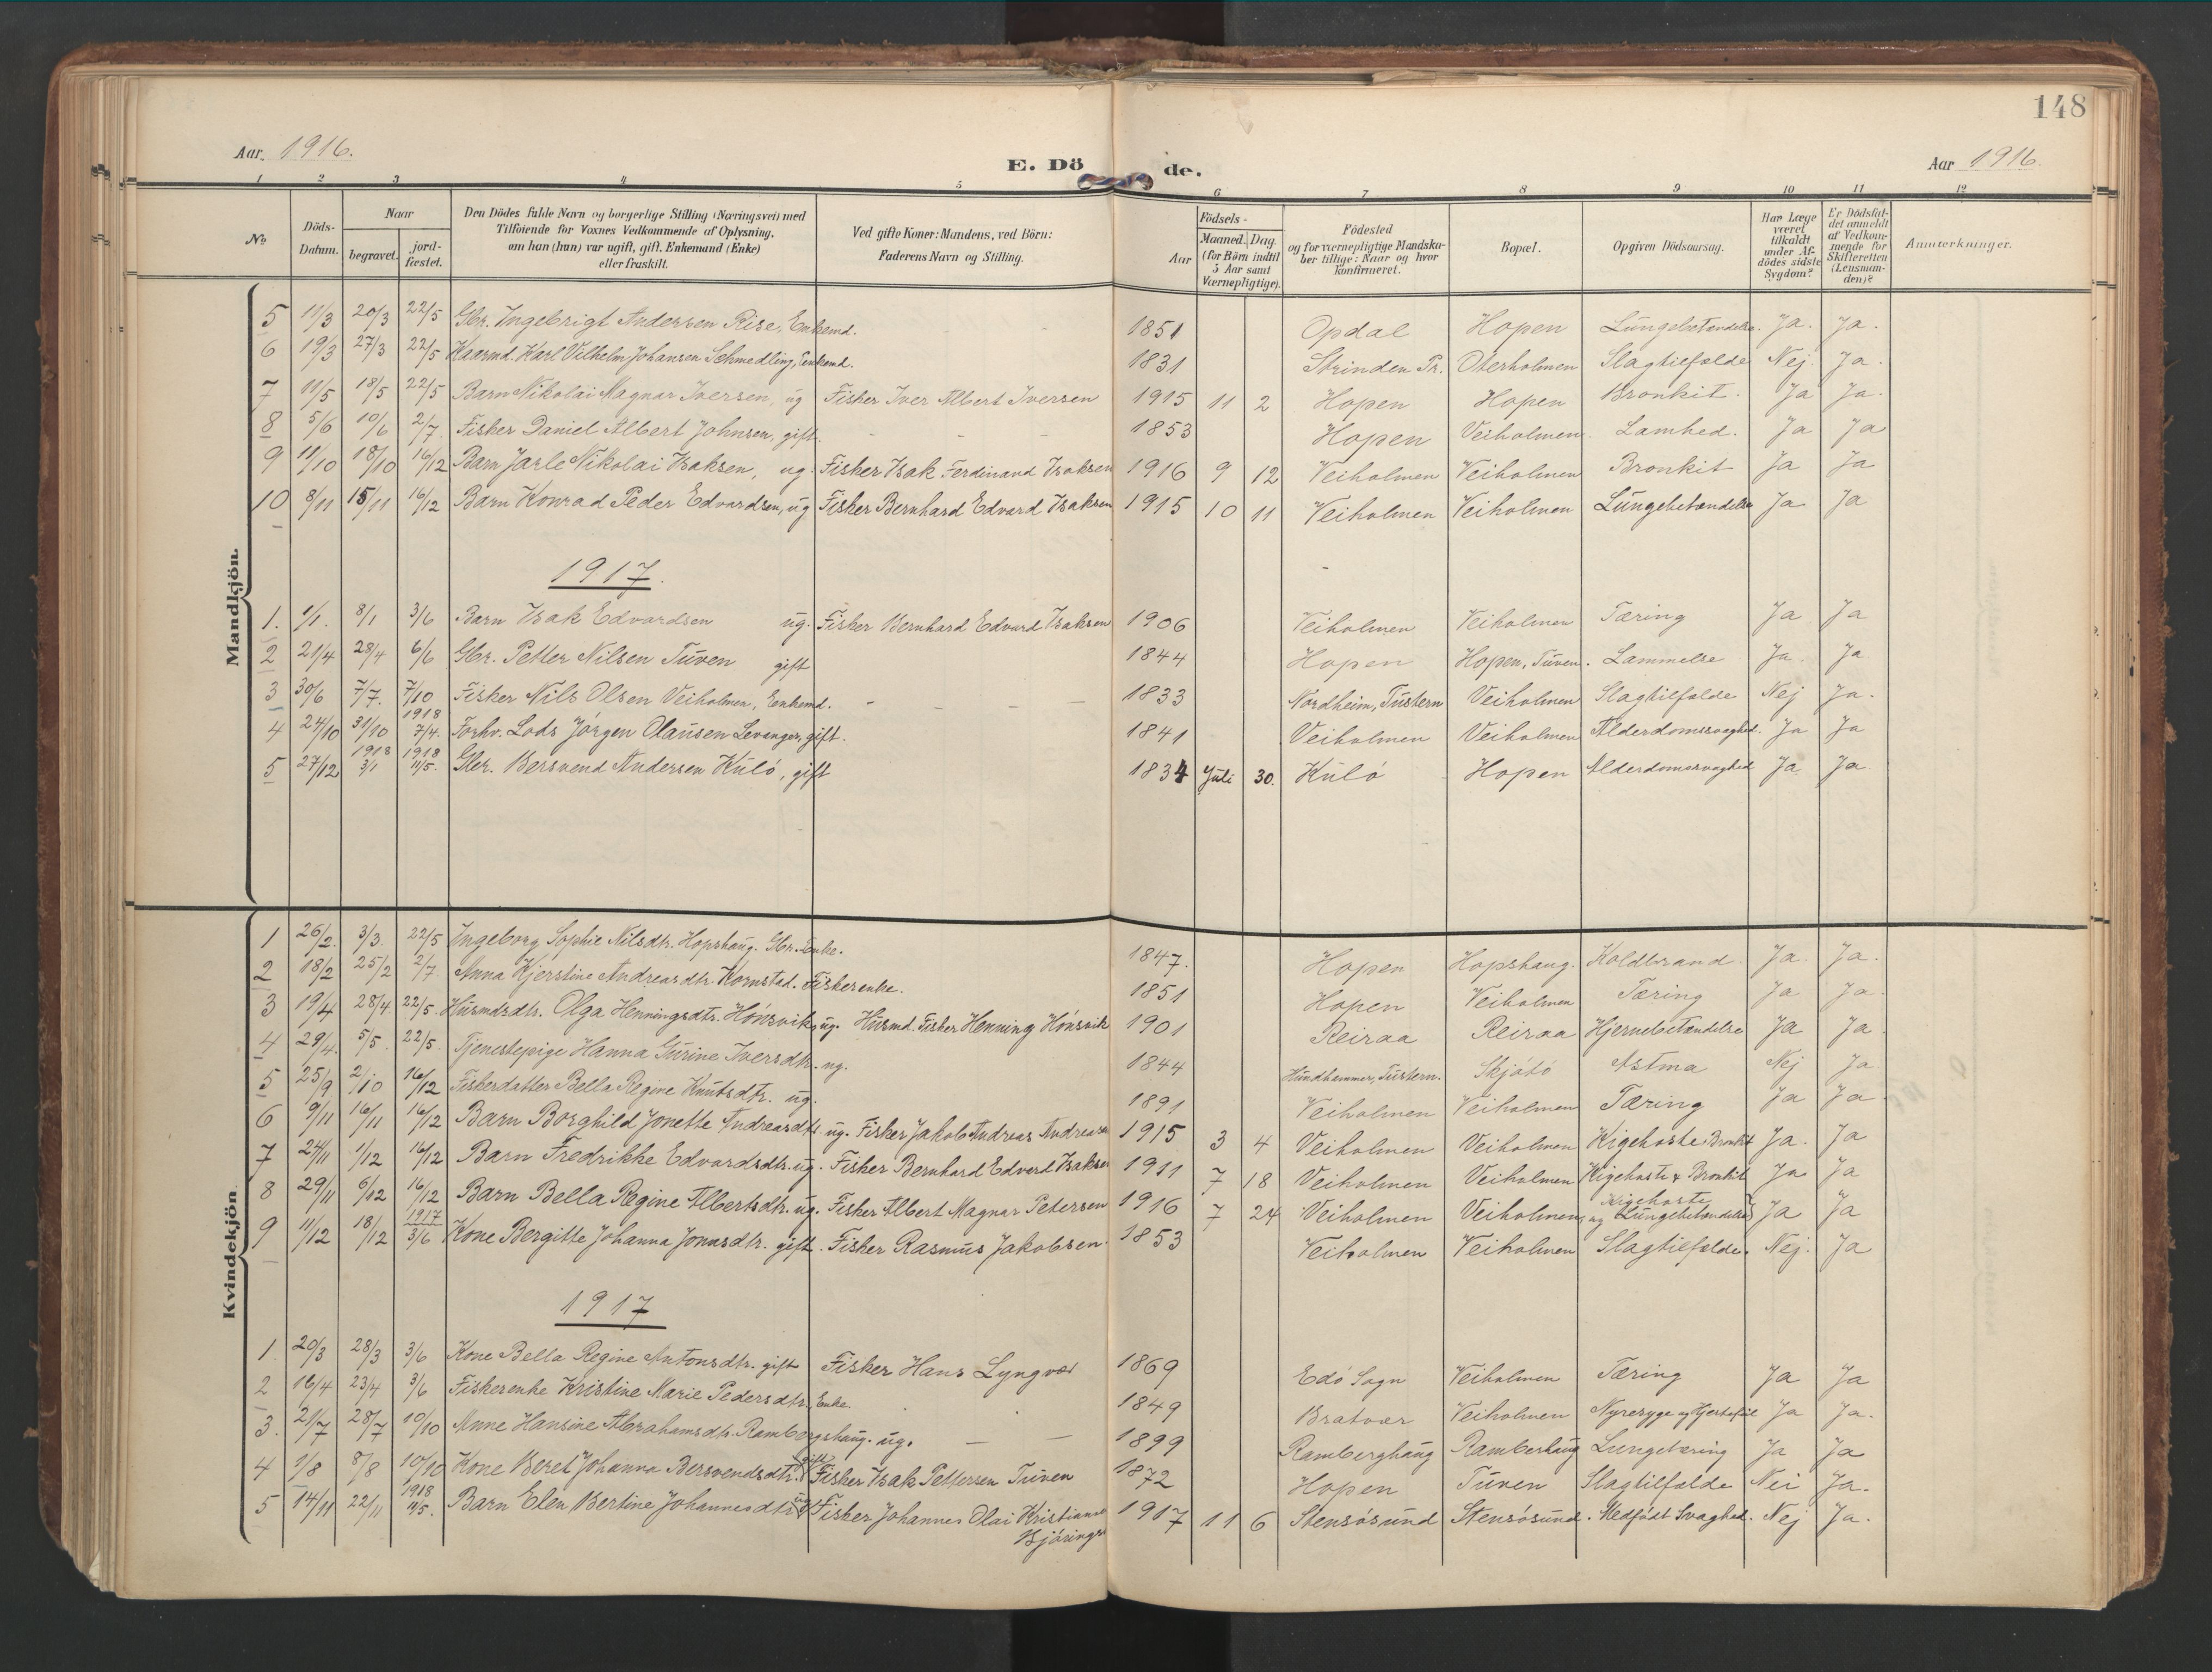 148
Aar 1916. E. Döde. Aar 1916.
1 2 3 4 5 6 7 8 9 10 11 12
No.
Döds-Datum.
Naar begravet. jord-fæstet.
Den Dödes fulde Navn og borgerlige Stilling (Næringsvei) med Tilföiende for Voxnes Vedkommende af Oplysning, om han (hun) var ugift, gift, Enkemand (Enke) eller fraskilt.
Ved gifte Koner: Mandens, ved Börn: Faderens Navn og Stilling.
Födsels- Aar Maaned. Dag. (for Börn indtil 5 Aar samt Værnepligtige).
Födested og for værnepligtige Mandskaber tillige: Naar og hvor konfirmeret.
Bopæl.
Opgiven Dödsaarsag.
Har Læge været tilkaldt under Afdödes sidste Sygdom?
Er Dödsfaldet anmeldt af Vedkommende for Skifteretten (Lensmanden)?
Anmærkninger.
Mandkjön.
5 11/3 20/3 22/5 Gbr. Ingebrigt Andersen Rise, Enkemd. 1851 Opdal Hopen Lungebetændelse. Ja. Ja.
6 19/3 27/3 22/5 Kaarmd. Karl Vilhelm Johansen Schmedling, Enkemd. 1831 Strinden Pr. Oterholmen Slagtilfælde Nej Ja.
7 11/5 18/5 22/5 Barn Nikolai Magnar Iversen, ug Fisker Iver Albert Iversen 1915 11 2 Hopen Hopen Bronkit. Ja Ja.
8 5/6 10/6 2/7 Fisker Daniel Albert Johnsen, gift. - - - 1853 Hopen Veiholmen. Lamhed. Ja Ja
9 11/10 18/10 16/12 Barn Jarle Nikolai Isaksen, ug. Fisker Isak Ferdinand Isaksen 1916 9 12 Veiholmen Veiholmen Bronkit Ja Ja
10 8/11 15/11 16/12 Barn Konrad Peder Edvardsen, ug Fisker Bernhard Edvard Isaksen 1915 10 11 Veiholmen Veiholmen Lungebetændelse Ja Ja
1917.
1. 1/1. 8/1 3/6 Barn Isak Edvardsen ug. Fisker Bernhard Edvard Isaksen 1906 Veiholmen Veiholmen Tæring Ja Ja
2 21/4 28/4 6/6 Gbr. Petter Nilsen Tuven gift 1844 Hopen Hopen, Tuven. Lammelse Ja. Ja
3 30/6 7/7. 7/10 Fisker Nils Olsen Veiholmen, Enkemd. - - - - 1833 Nordheim, Tustern Veiholmen Slagtilfælde Nej Ja.
4 24/10 31/10 1918 7/4. Forhv. Lods Jörgen Olausen Levanger, gift. 1841 Veiholmen Veiholmen Alderdomssvaghed. Ja Ja
5 27/12 1918 3/1 1918 11/5. Gbr. Bersvend Andersen Kulö, gift 1834 Juli 30. Kulö Hopen Alderdomssvaghed Ja Ja
Kvindekjön.
1 26/2. 3/3. 22/5 Ingeborg Sophie Nilsdtr. Hopshaug. Gbr. Enke. 1847. Hopen Hopshaug. Koldbrand. Ja. Ja.
2 18/2 25/2 2/7 Anna Kjerstine Andreasdtr. Kornstad. Fiskerenke. 1851 Hopen Veiholmen Tæring Ja Ja.
3 19/4 28/4 22/5. Husmdsdtr. Olga Henningsdtr. Hönsvik, ug. Husmd. Fisker Henning Hönsvik 1901 Reiraa Reiraa Hjernebetændelse Ja Ja
4 29/4. 5/5. 22/5. Tjenestepige Hanna Gurine Iversdtr. ug. 1844 Hundhammer, Tustern. Skjötö Astma Nej Ja
5 25/9 2/10 16/12 Fiskerdatter Bella Regine Knutsdtr. ug. 1891 Veiholmen Veiholmen Tæring Ja Ja
6 9/11 16/11 16/12 Barn Borghild Jonette Andreasdtr. ug. Fisker Jakob Andreas Andreasen 1915 3 4 Veiholmen Veiholmen Kigehoste Bronkit Ja. Ja
7 24/11 1/12 16/12 Barn Fredrikke Edvardsdtr. ug. Fisker Bernhard Edvard Isaksen 1911 7 18 Veiholmen Veiholmen Kigehoste & Bronkit Ja Ja
8 29/11 6/12 16/12 Barn Bella Regine Albertsdtr. ug. Fisker Albert Magnar Petersen 1916 7 24 Veiholmen Veiholmen Kigehoste og Lungebetændelse Ja Ja
9 11/12 18/12 1917 3/6 Kone Bergitte Johanna Jonasdtr. gift. Fisker Rasmus Jakobsen. 1853 Veiholmen Veiholmen Slagtilfælde. Nej. Ja
1917
1. 20/3 28/3 3/6 Kone Bella Regine Antonsdtr. gift Fisker Hans Lyngvær 1869 Edö Sogn Veiholmen Tæring Ja Ja
2 16/4 23/4 3/6 Fiskerenke Kristine Marie Pedersdtr. Enke. 1849 Bratvær Veiholmen Nyresyge og Hjertefeil Ja Ja.
3. 21/7 28/7 10/10 Anne Hansine Abrahamsdtr. Rambergshaug. ug. — — 1899 Ramberghaug Ramberhaug Lungetæring Ja Ja
4 1/8 8/8 10/10 Kone Beret Johanna Bersvendsdtr. gift Fisker Isak Pettersen Tuven 1872 Hopen Tuven Slagtilfælde Nei Ja.
5 14/11 22/11 1918 11/5. Barn Elen Bertine Johannesdtr. ug. Fisker Johannes Olai Kristiansen Björingsö 1917 11 6 Stensösund Stensösund. Medfödt Svaghed. Nej Ja.